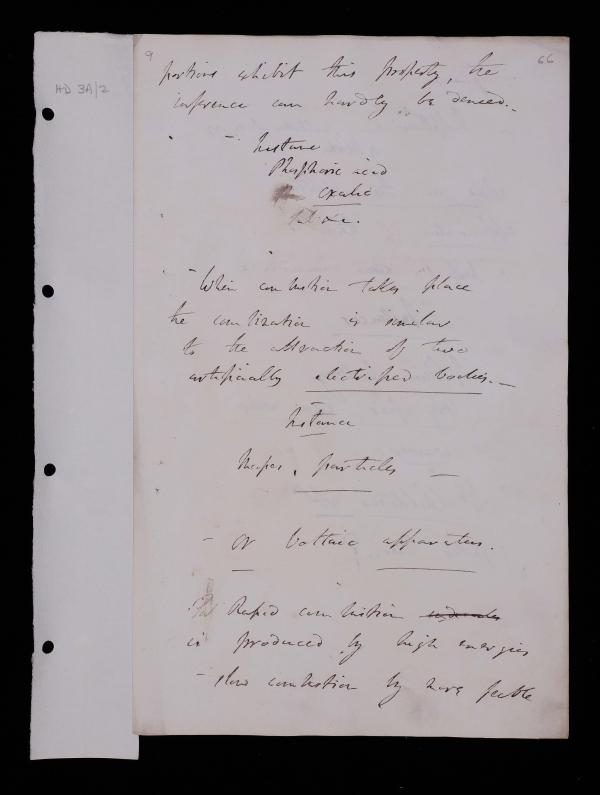 HD 3A/2
9
66
portions exhibit this property, the
inference can hardly be denied._
— Instance
Phosphoric acid
oxalic
&c.
– When combustion takes place
the combination is similar
to the attraction of two
artificially electrified bodies. —
Instance
particles —
– or Voltaic apparatus.
Rapid combustion
is produced by high energies
– slow combustion by more feeble